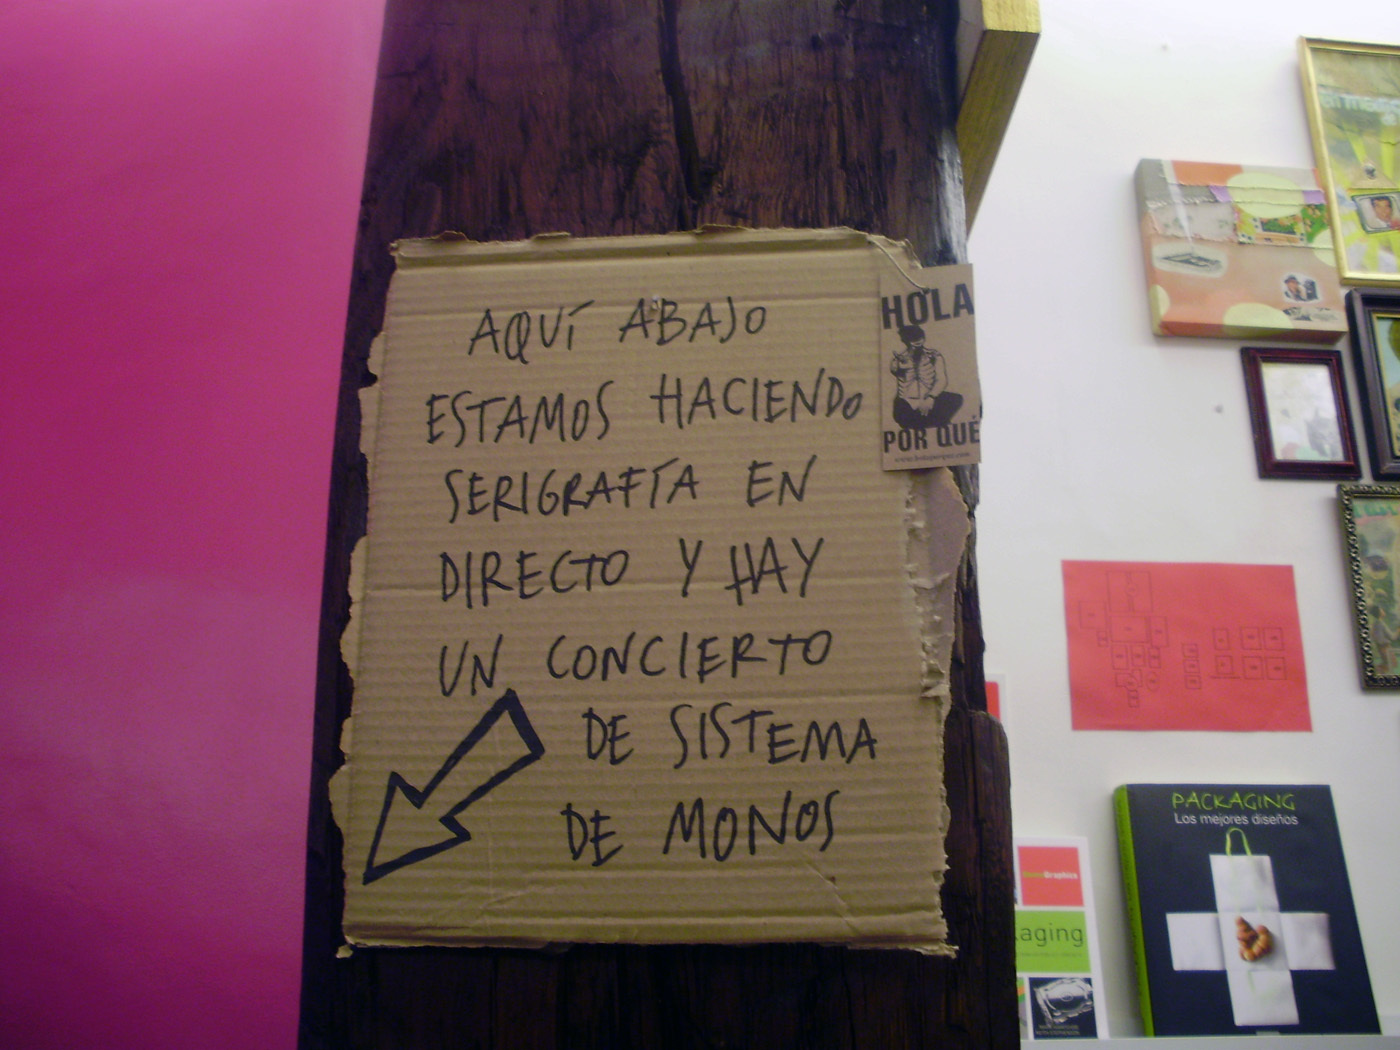 AQUÍ ABAJO
ESTAMOS HACIENDO
SERIGRAFÍA EN
DIRECTO Y HAY
UN CONCIERTO
DE SISTEMA
DE MONOS
HOLA
POR QUÉ
PACKAGING
Los mejores diseños
aging